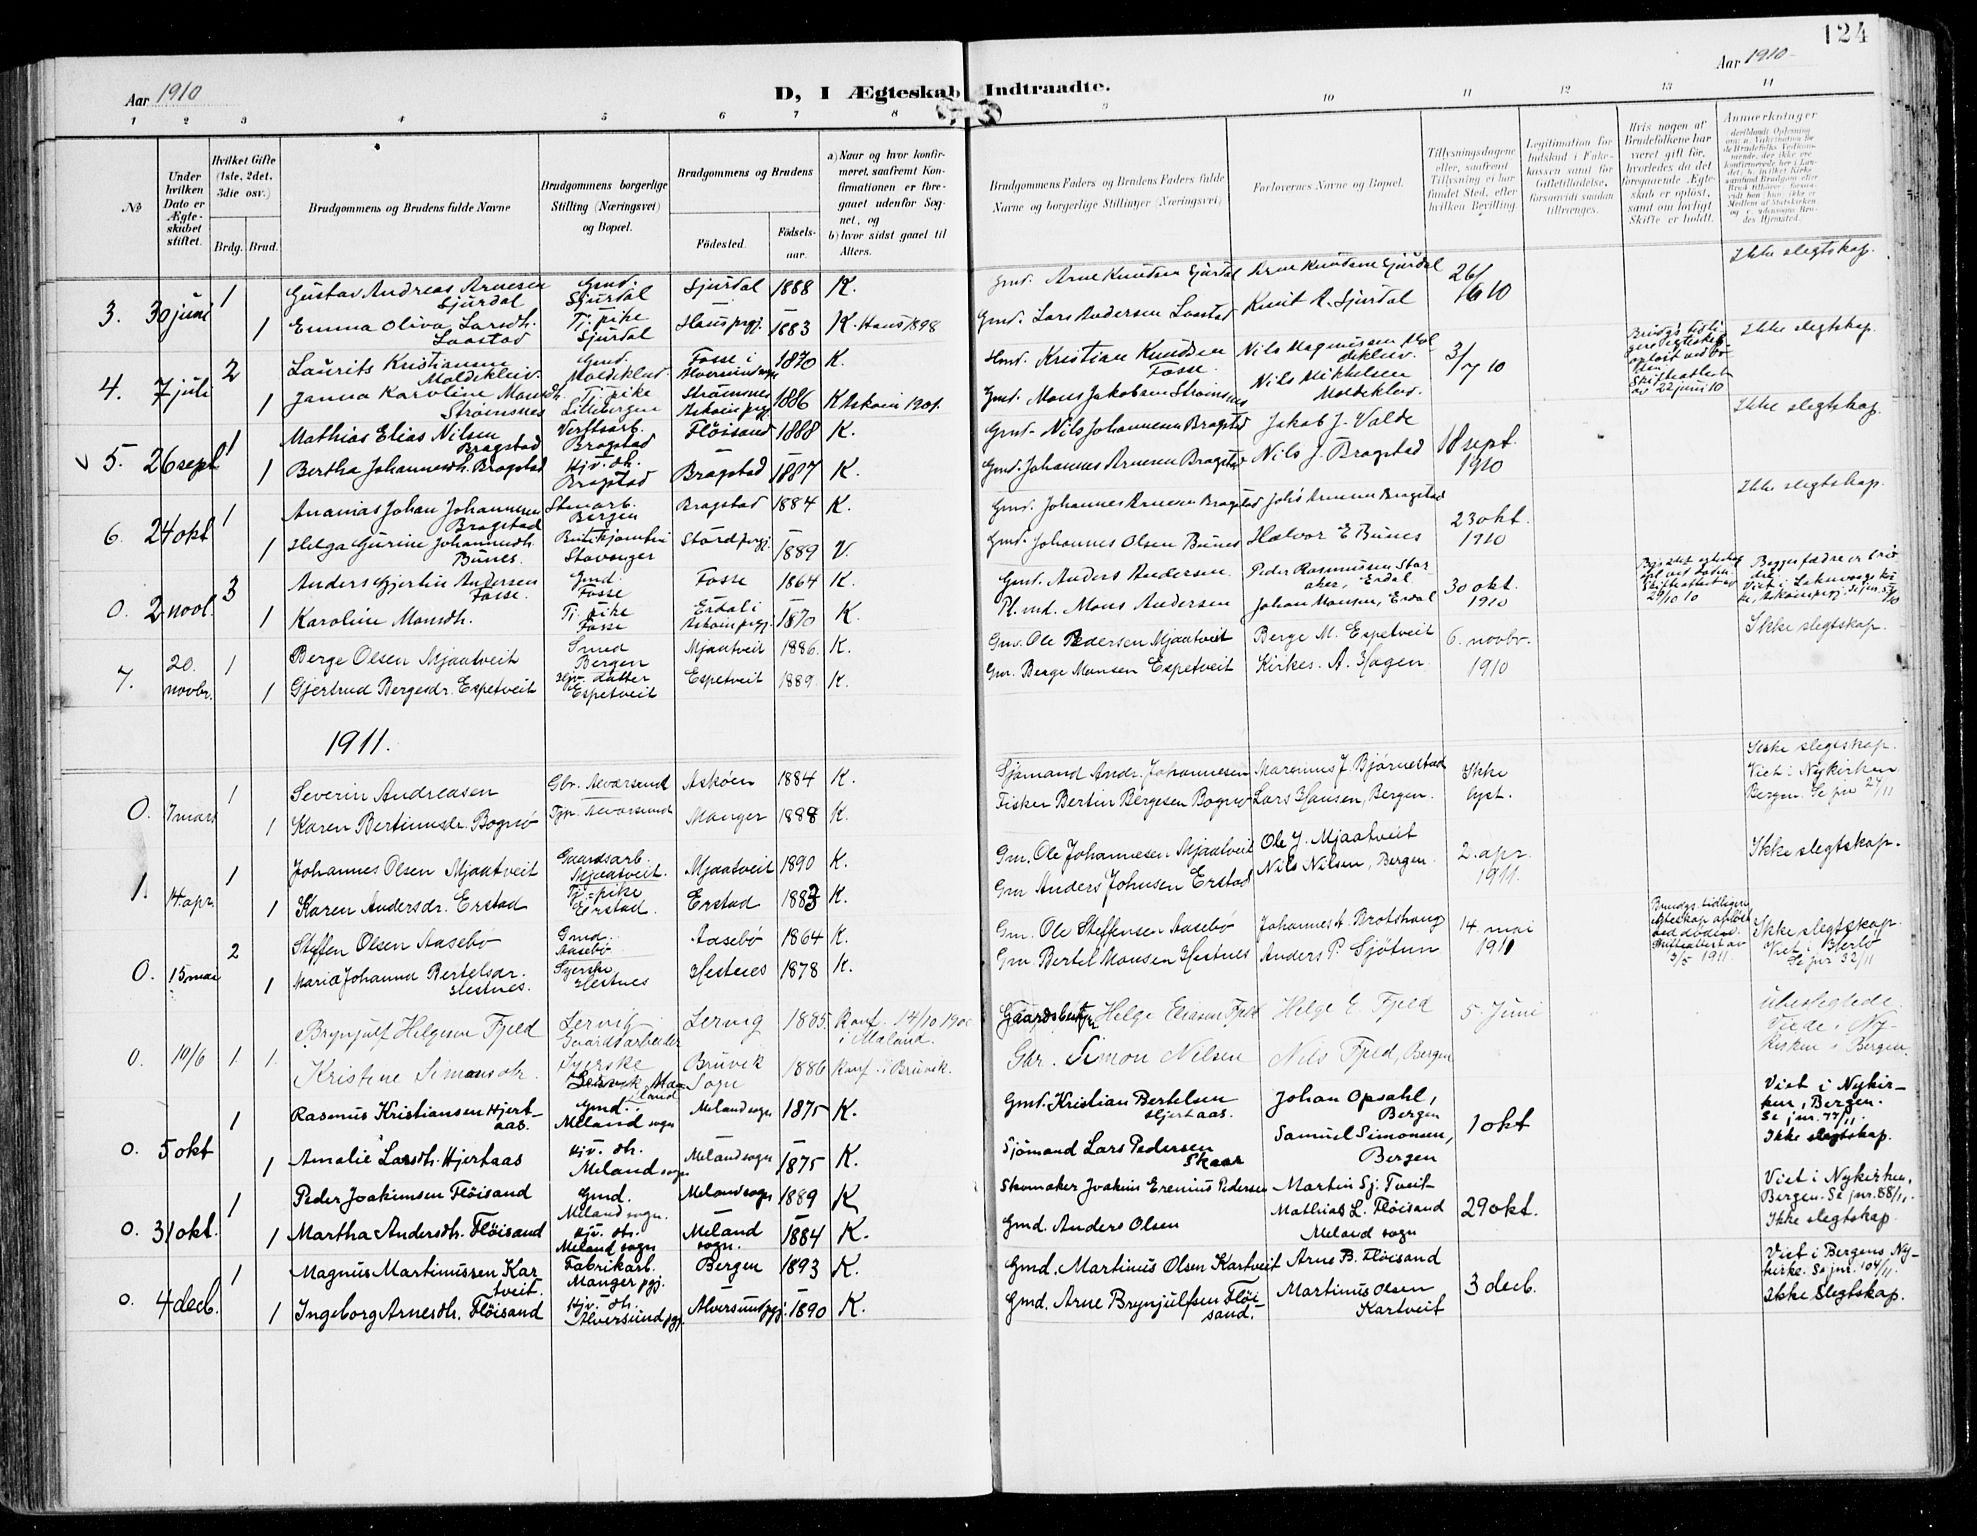 124
Aar 1910
D, I Ægteskab Indtraadte.
Aar 1910
1 2 3 4 5 6 7 8 9 10 11 12 13 14
№
Under hvilken Dato er Ægteskabet stiftet.
Hvilket Gifte (1ste, 2det, 3die osv.)
Brdg. Brud.
Brudgommens og Brudens fulde Navne
Brudgommens borgerlige Stilling (Næringsvei) og Bopæl.
Brudgommens og Brudens
Fødested. Fødsels-aar.
a) Naar og hvor konfirmeret, saafremt Konfirmationen er foregaaet udenfor Sognet, og
b) hvor sidst gaaet til Alters.
Brudgommens Faders og Brudens Faders fulde Navne og borgerlige Stillinger (Næringsvei)
Forlovernes Navne og Bopæl.
Tillysningsdagene eller, saafremt Tillysning ei har fundet Sted, efter hvilken Bevilling.
Legitimation for Indskud i Enkekassen samt for Giftetilladelse, forsaavidt saadan tiltrænges.
Hvis nogen af Brudefolkene har været gift før, hvorledes da det foregaaende Ægteskab er opløst, samt om lovligt Skifte er holdt.
Anmerkninger
3. 30 juni 1 Gustav Andreas Arnesen Sjurdal Gmd. Sjurdal Sjurdal 1888 K. Gmd. Arne Knudsen Sjurdal Arne Knudsen Sjurdal 26/ 6 10 Ikke slegtskap.
1 Emma Oliva Larsdh. Laastad Tj. pike Sjurdal Haus prgj. 1883 K. Haus 1898 Gmd. Lars Andersen Laastad Knut A. Sjurdal
4. 7 juli 2 Laurits Kristiansen Moldekleiv Gmd. Moldekleiv Fosse i Alversund sogn 1870 K. Hmd. Kristian Knudsen Fosse Nils Magnussen Moldekleiv. 3/7 10 Ikke slegtskap.
1 Janna Karoline Monsdh. Strømsnes Tj. pike Lillebergen Strømsnes Askøin prgj. 1886 K Askøin 1901. Gmd. Mons Jakobsen Strømsnes Nils Mikkelsen Moldekleiv.
5. 26 sept 1 Mathias Elias Nilsen Bragstad Verftsarb. Bragstad Fløisand 1888 K. Gmd. Nils Johannesen Bragstad Jakob J. Valde 18 sept. 1910 Ikke slegtskap.
1 Bertha Johannesdh. Bragstad Hjv. dh. Bragstad Bragstad 1887 K. Gmd. Johannes Arnesen Bragstad Nils J. Bragstad
6. 24 okt 1 Ananias Johan Johannesen Bragstad Stenarb. Bergen Bragstad 1884 K. Gmd. Johannes Arnesen Bragstad Johs Arnesen Bragstad 23 okt. 1910 Ikke slegtskap.
1 Helga Gurine Johannesdh. Bunes Stavanger Stord prgj. 1889 V. Gmd. Johannes Olsen Bunes Halvor E Bunes
0. 2 novb. 3 Anders Gjertin Andersen Fosse. Gmd. Fosse Fosse 1864 K. Gmd. Anders Andersen. Peder Rasmussen Storaker, Erdal 30 okt. 1910
1 Karoline Monsdh. Tj. pike Fosse Erdal i Askøin prgj. 1870 K. Pl. md. Mons Andersen Johan Monsen, Erdal
7. 20. novbr. 1 Berge Olsen Mjaatveit Smed Bergen Mjaatveit 1886. K. Gm. Ole Pedersen Mjaatveit Berge M. Espetveit 6. novbr. 1910 Ikke slegtskap.
1 Gjertrud Bergesdr. Espetveit Hjv. datter Espetveit Espetveit 1889. K. Gm. Berge Monsen Espetveit Kirkes. A. Hagen
1911.
0. 7 mars 1 Severin Andreasen Gbr. Alversund Askøen 1884 K. Sjømand Andr. Johannesen Marenius J. Bjørnestad Ikke lyst. Ikke slegtskap. Viet i Nykirken Bergen. Se jnr 27/11
1 Karen Bertinusdr. Bognø Tjp. Alversund Manger 1888 K. Fisker Bertin Bergesen Bognø Lars Hansen, Bergen.
1. 14. apr. 1 Johannes Olsen Mjaatveit Gaardsarb. Mjaatveit. Mjaatveit 1890 K. Gm. Ole Johannesen Mjaatveit Ole J. Mjaatveit 2. apr. 1911. Ikke slegtskap.
1 Karen Andersdr. Erstad Tj-pike Erstad. Erstad 1883 K. Gm Anders Johnsen Erstad Nils Nilsen, Bergen.
0. 15 mai 2 Steffen Olsen Aasebø Gmd. Aasebø Aasebø 1864 K. Gm. Ole Steffensen Aasebø Johannes A. Brotshaug 14 mai 1911 Brudgs. tidligere egteskap opløst ved døden. Skifteattest av 3/5 1911. Ikke slegtskap. Viet i Herlø Se jnr 32/11
1 Maria Johanna Bertelsdr. Hestnes. Syerske Hestnes Hestnes 1878 K. Gm Bertel Monsen Hestnes Anders P. Sjøtun
0. 10/6 1. 1. Brynjulf Helgesen Fjeld Lervig Gaardsarbeider Lervig 1885. Konf. 14/10 190 i Meland. Gaardsbruger Helge Eliasen Fjeld Helge E. Fjeld 5. Juni ubeslegtede. Viede i Nykirken i Bergen.
Kristene Simonsdr. Syerske Bruvik Sogn 1886 Konf. i Bruvik. Gbr. Simon Nilsen Nils Fjeld, Bergen
0. 5 okt 1 Rasmus Kristiansen Hjertaas. Gmd. Meland sogn Meland sogn 1875 K. Gmd. Kristian Bertelsen Hjertaas. Johan Opsahl, Bergen 1 okt Viet i Nykirken, Bergen. Se jnr. 77/11. Ikke slegtskap.
1 Amalie Larsdh. Hjertaas Hjv. dh. Meland sogn Meland sogn 1875 K. Sjømand Lars Pedersen Skaar Samuel Simonsen, Bergen
0. 31 okt. 1 Peder Joakimsen Fløisand Gmd. Meland sogn. Meland sogn 1889 K Skomaker Joakim Erenius Pedersen Martin Sj. Tveit 29 okt. Viet i Nykirken, Bergen. Se jnr. 88/11. Ikke slegtskap.
1 Martha Andersdh. Fløisand Hjv. dh. Meland sogn Meland sogn. 1884 K. Gmd. Anders Olsen Mathias L. Fløisand Meland sogn
0. 4 decb. 1 Magnus Martinussen Kartveit. Fabrikarb. Manger pgj. Bergen 1893 K. Gmd. Martinus Olsen Kartveit Arne B. Fløisand 3 decb. Viet i Bergens Nykirke. Se jnr. 104/11. Ikke slegtskap.
1 Ingeborg Arnesdh. Fløisand Hjv. dh. Alversund pgj. Alversund pgj. 1890 K. Gmd. Arne Brynjulfsen Fløisand. Martinus Olsen Kartveit